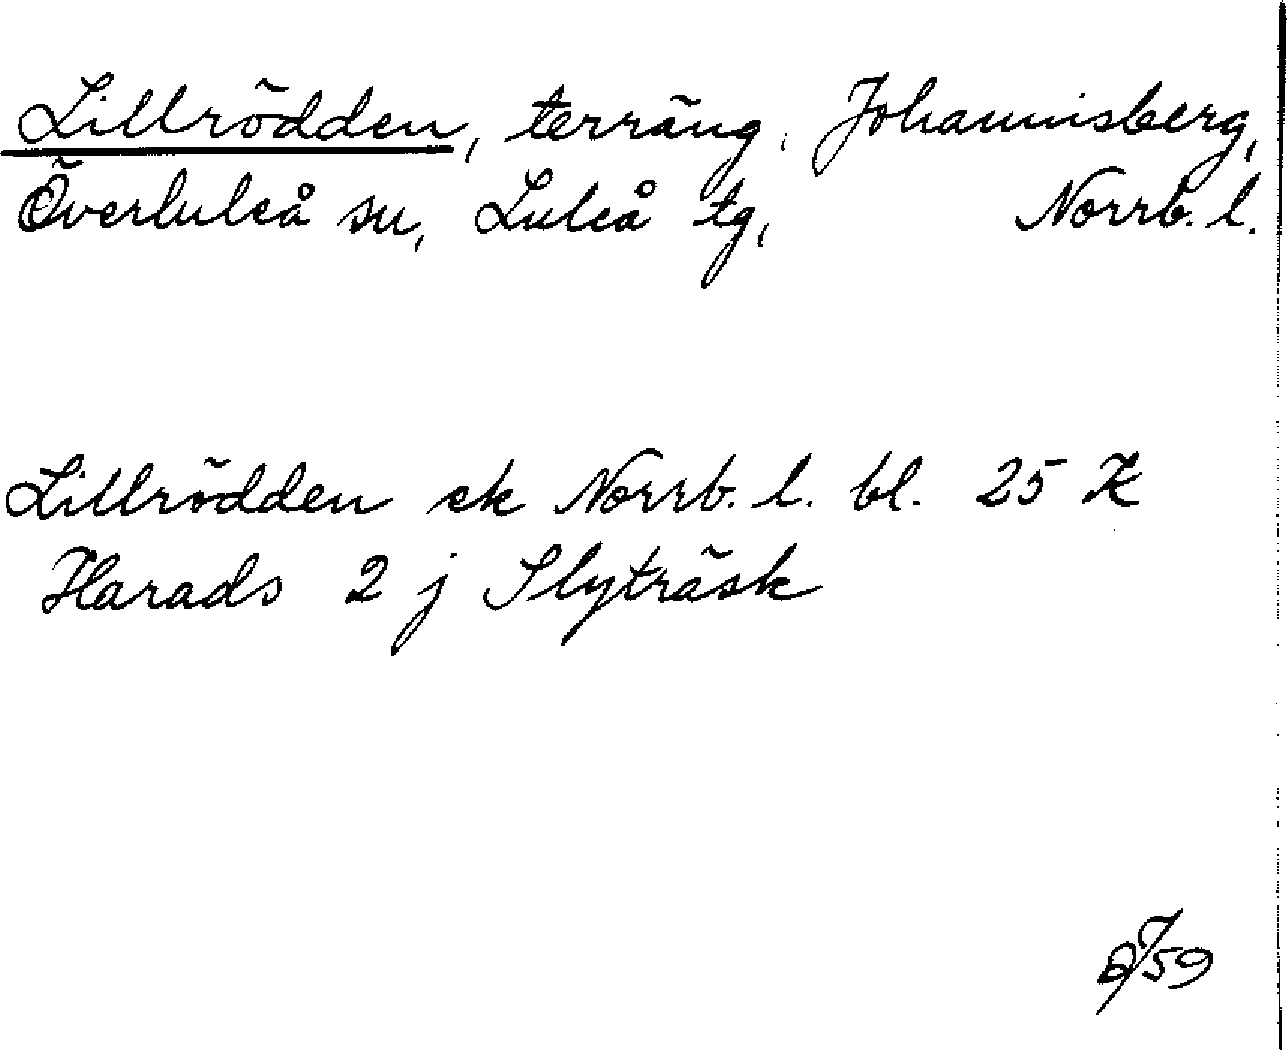 Lillrödden, terräng, Johannisberg,
Överluleå sn, Luleå tg, Norrb. l.
Lillrödden ek Norrb. l. bl. 25 K
Harads 2 j Slyträsk
59